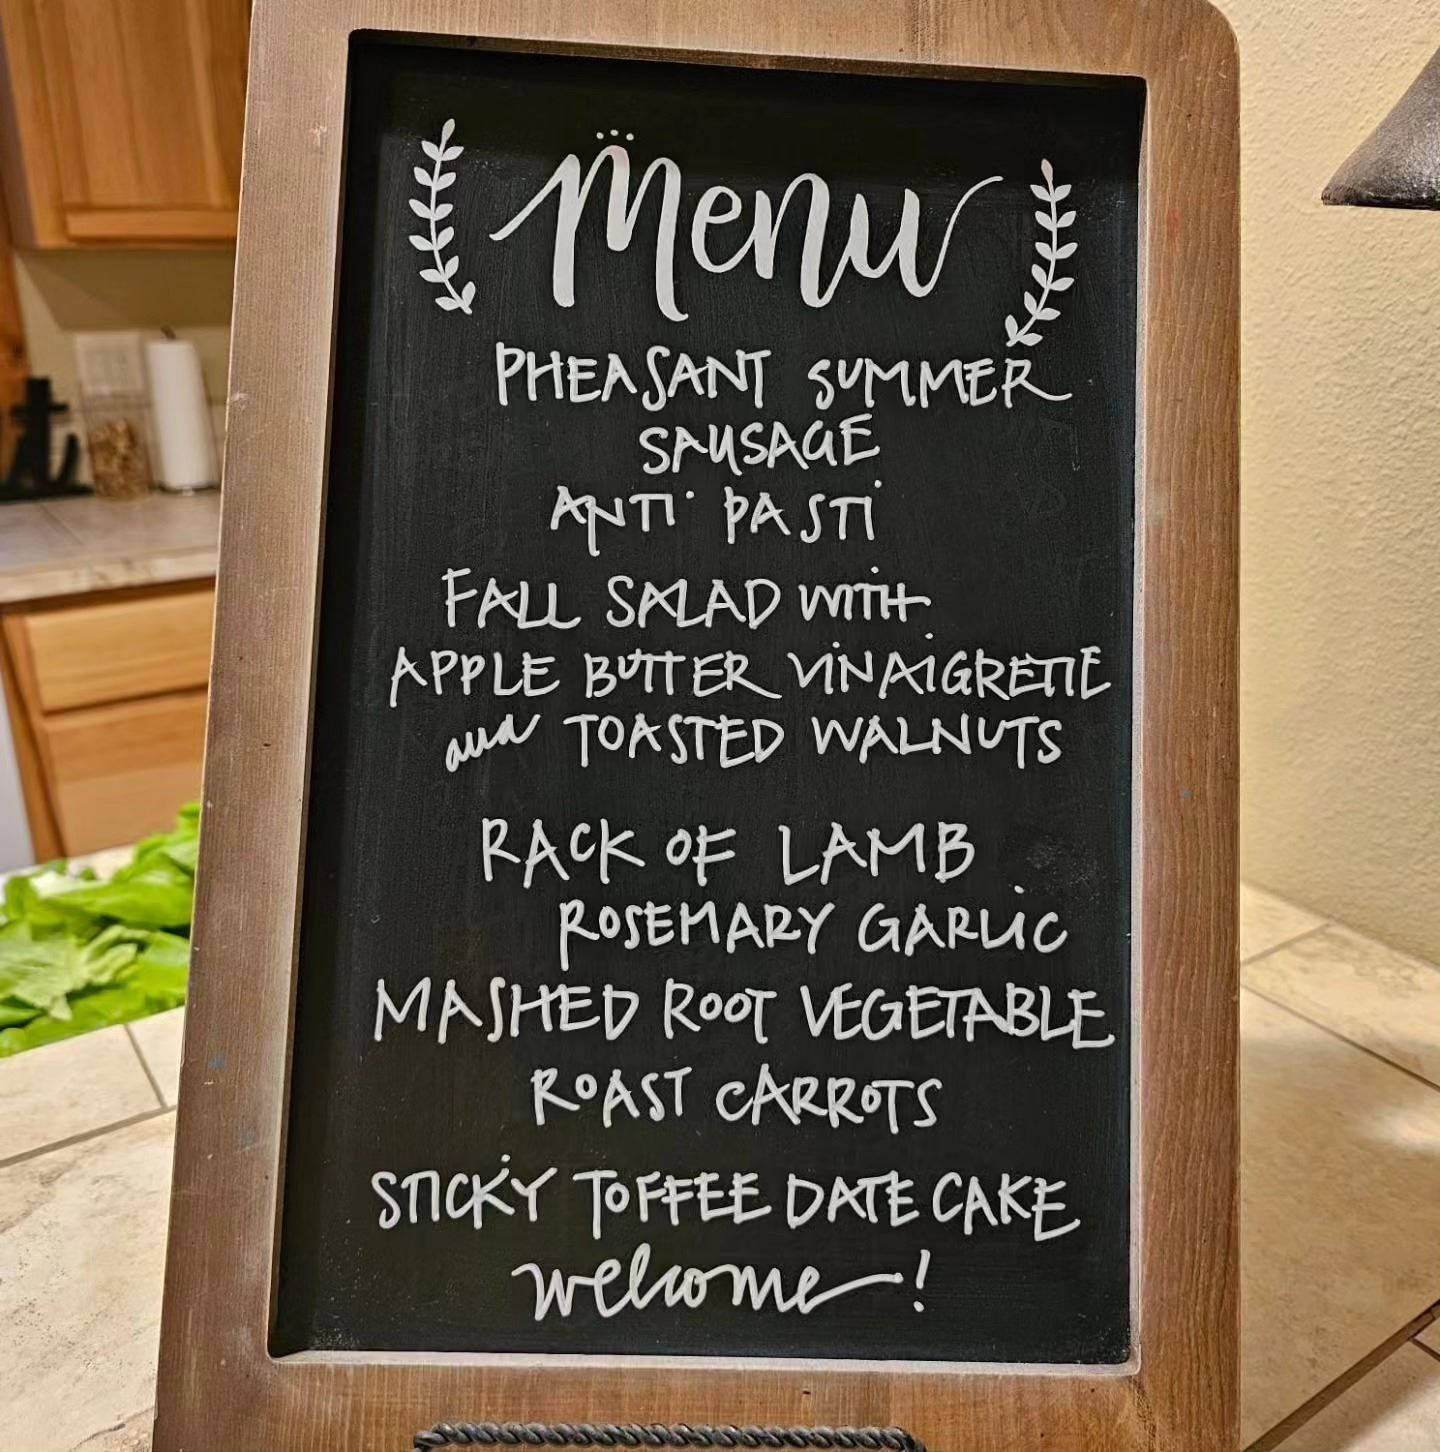 Menu
PHEASANT SUMMER
SAUSAGE
ANTI PASTI
FALL SALAD WITH
APPLE BUTTER VINAIGRETTE
and TOASTED WALNUTS
RACK OF LAMB
ROSEMARY GARLIC
MASHED ROOT VEGETABLE
ROAST CARROTS
STICKY TOFFEE DATE CAKE
welcome!